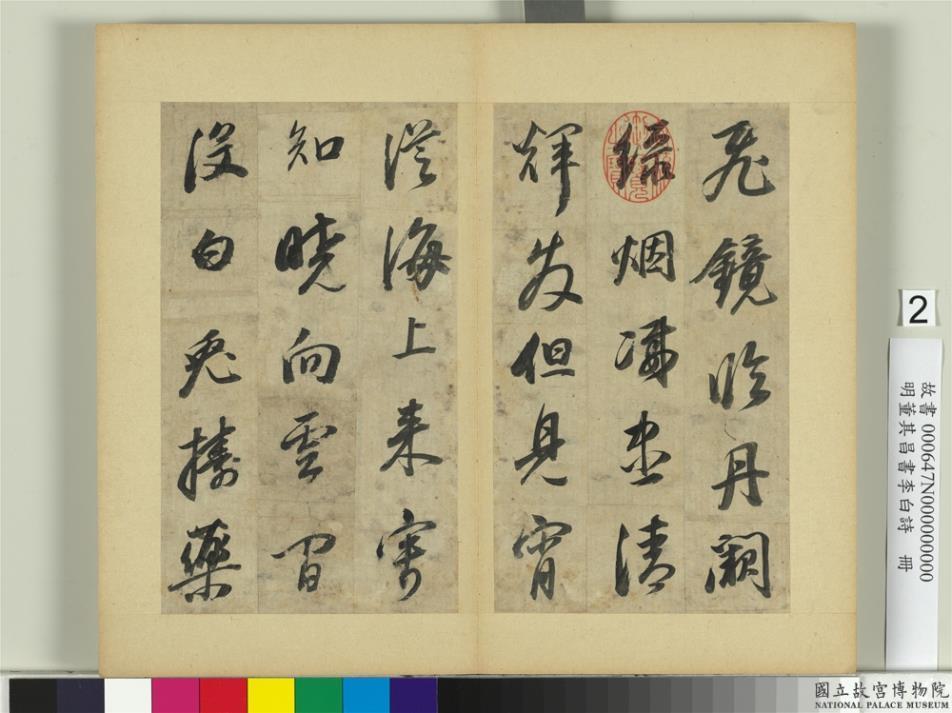 飛鏡臨丹闕
綠烟滅盡清
輝發但見宵
從海上來寧
知曉向雲間
沒白兔擣藥
2
故書 000647N000000000
明董其昌書李白詩 冊
國立故宮博物院
NATIONAL PALACE MUSEUM